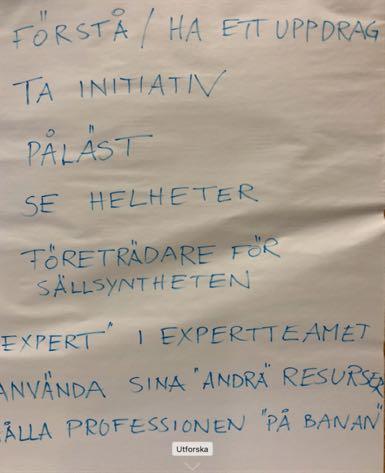 FÖRSTÅ / HA ETT UPPDRAG
TA INITIATIV
PÅLÄST
SE HELHETER
FÖRETRÄDARE FÖR
SÄLLSYNTHETEN
EXPERT" I EXPERTTEAMET
ANVÄNDA SINA "ANDRA" RESURSER
ÅLLA PROFESSIONEN "PÅ BANAN"
Utforska